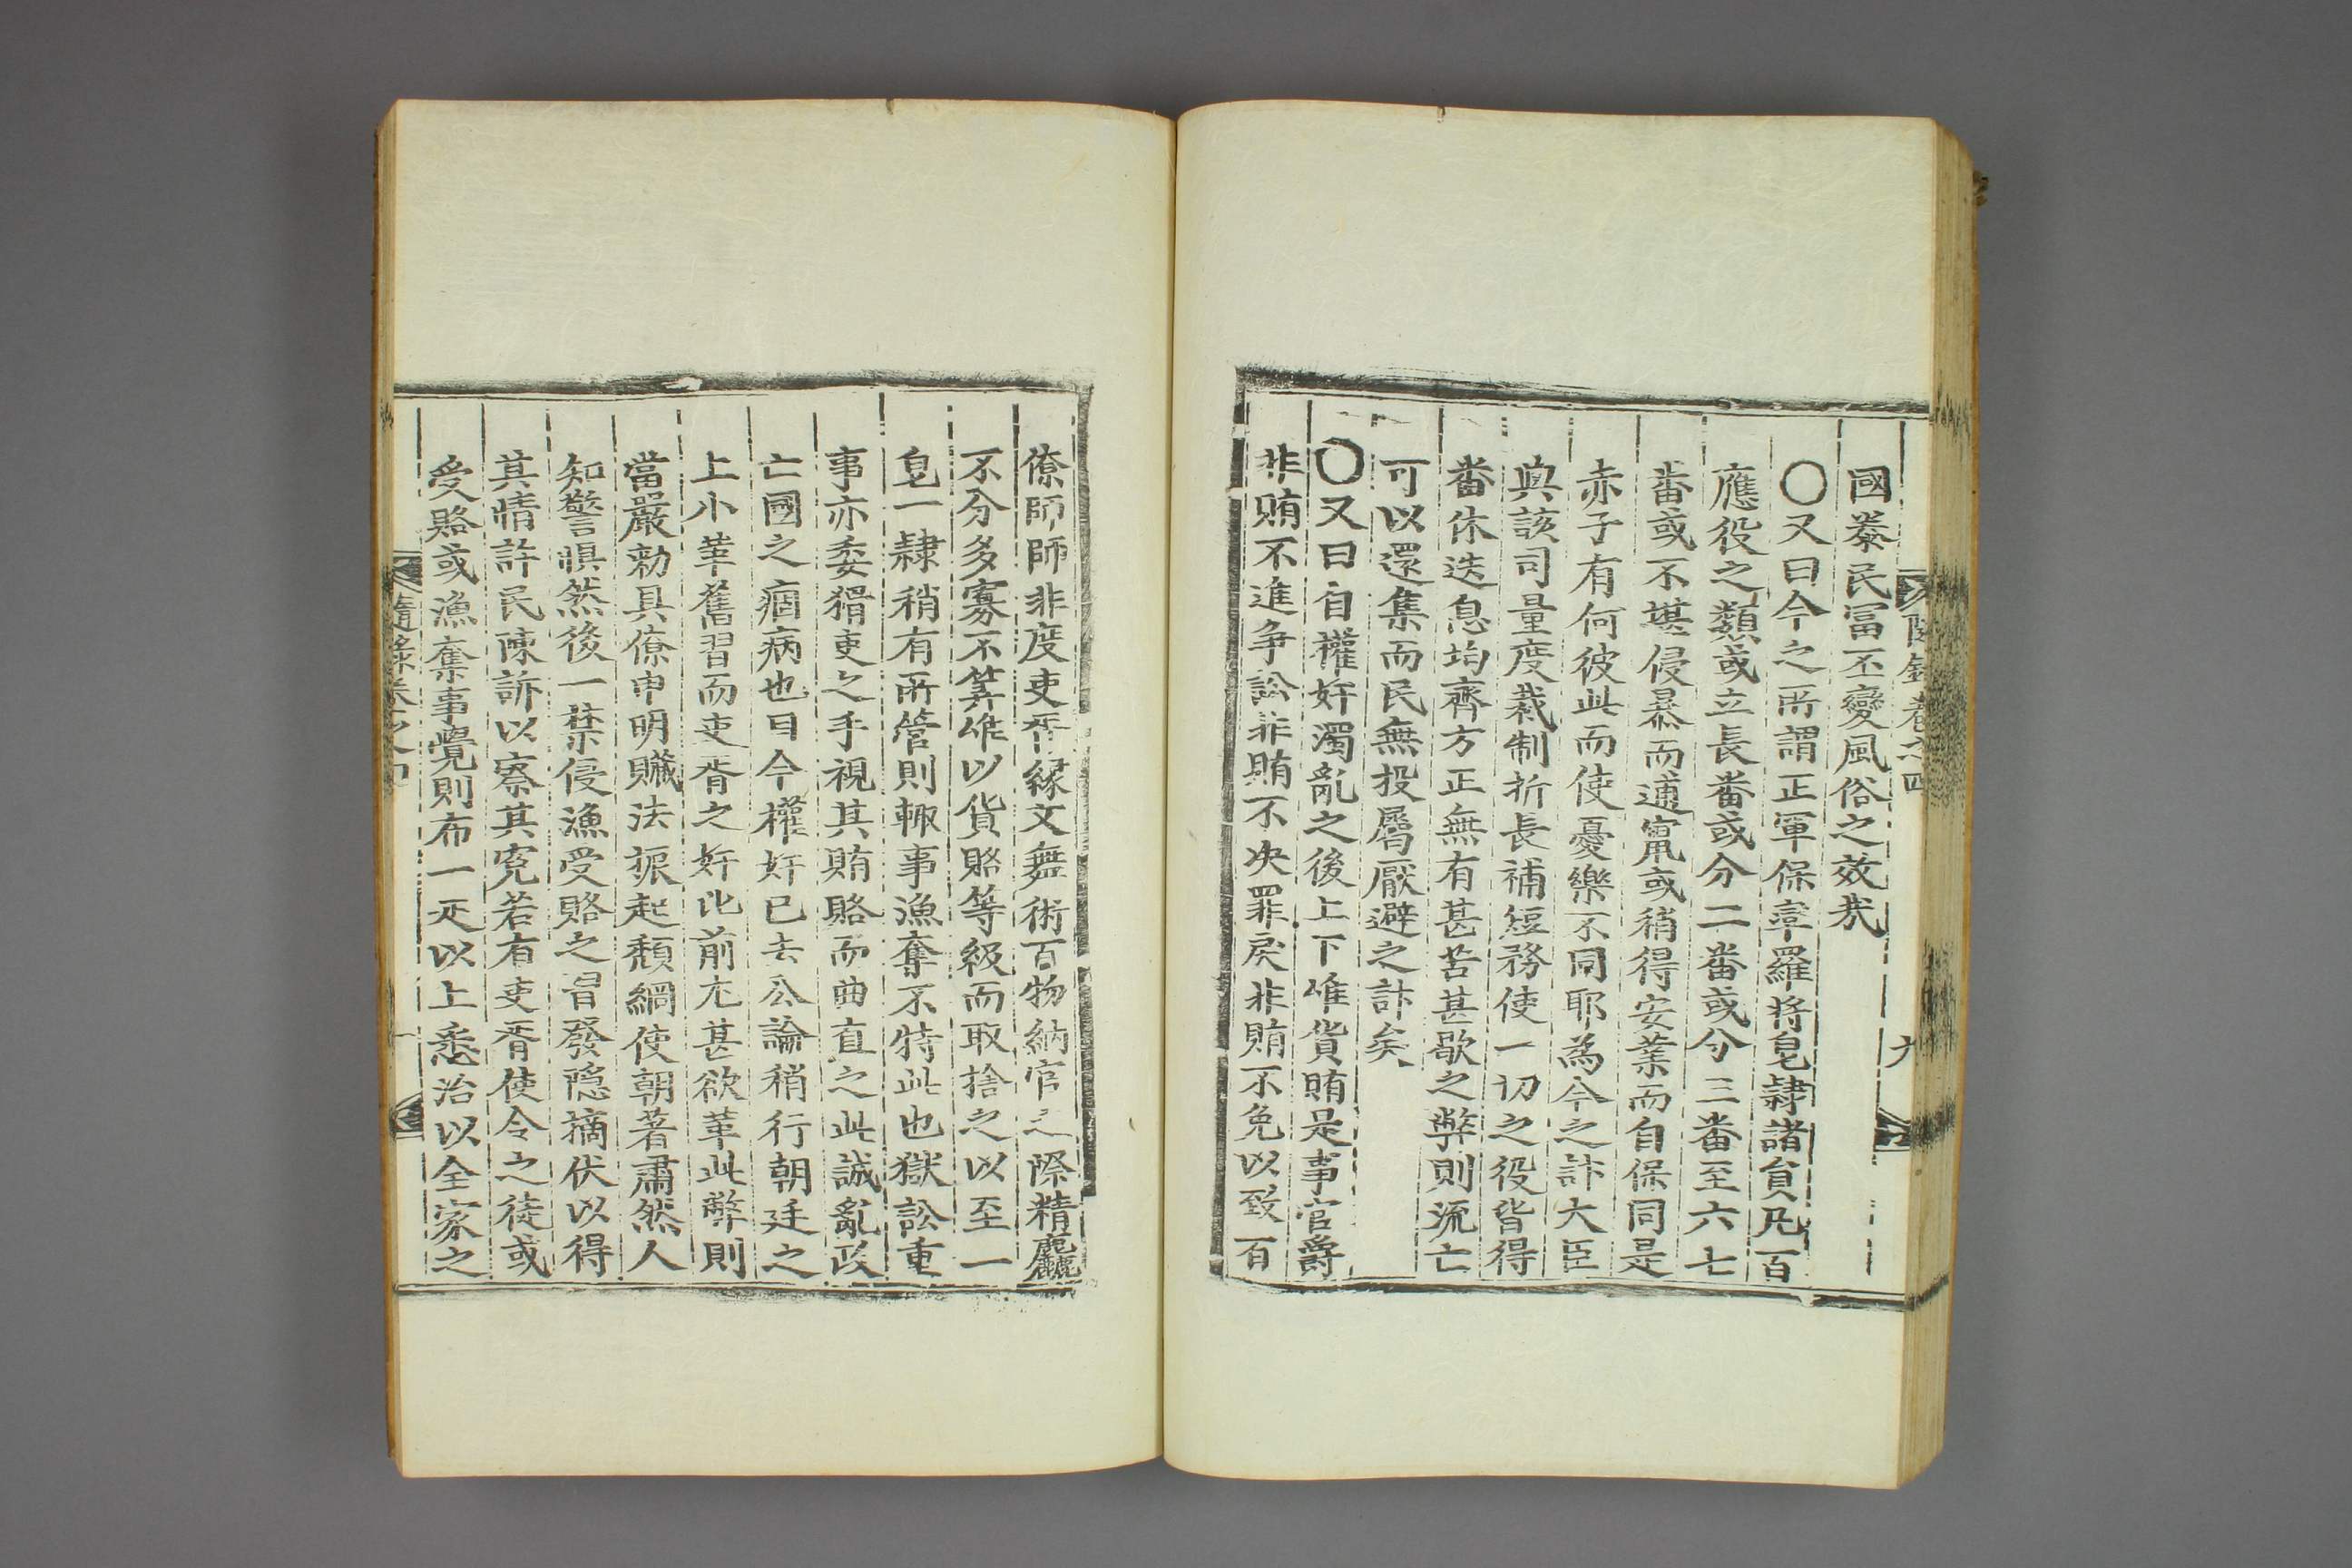 隨錄卷之四
九
國泰民富丕變風俗之效哉
○又曰今之所謂正軍保率羅將皂隷諸員凡百
應役之類或立長番或分二番或分三番至六七
番或不堪侵暴而逋竄或稍得安業而自保同是
赤子有何彼此而使憂樂不同耶為今之計大臣
與該司量度裁制折長補短務使一切之役皆得
番休迭息均齊方正無有甚苦甚歇之弊則流亡
可以還集而民無投屬厭避之計矣
○又曰自權奸濁亂之後上下唯貨賄是事官爵
非賄不進爭訟非賄不决罪戾非賄不免以致百
僚師師非度吏胥緣文舞術百物納官之際精麤
不分多寡不筭唯以貨賂等級而取捨之以至一
皂一隷稍有所管則輒事漁奪不特此也獄訟重
事亦委猾吏之手視其賄賂而曲直之此誠亂政
亡國之痼病也目今權奸已去公論稍行朝廷之
上小革舊習而吏胥之奸比前尤甚欲革此弊則
當嚴勑具僚申明贓法振起頹綱使朝著肅然人
知警惧然後一禁侵漁受賂之習發隐摘伏以得
其情許民陳訴以察其寃若有吏胥使令之徒或
受賂或漁奪事覺則布一疋以上悉治以全家之
隨錄卷之四